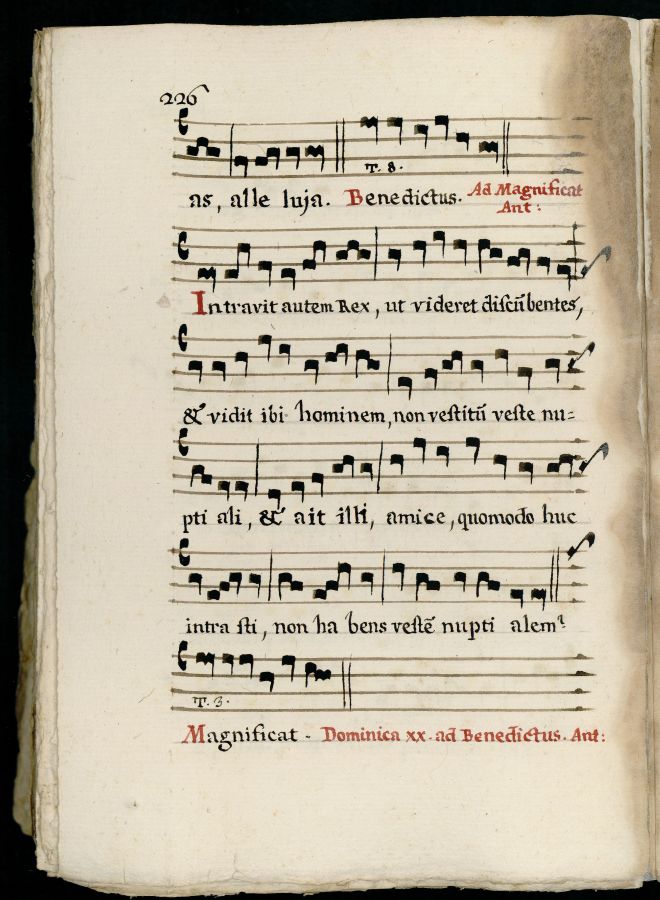 226
T. 8.
as, alle luja. Benedictus. Ad Magnificat
Ant:
Intravit autem Rex, ut videret discūbentes,
& vidit ibi hominem, non vestitū veste nu=
pti ali, & ait illi, amice, quomodo huc
intra sti, non ha bens vestē nupti alem?
T. 3.
Magnificat - Dominica xx. ad Benedictus. Ant: